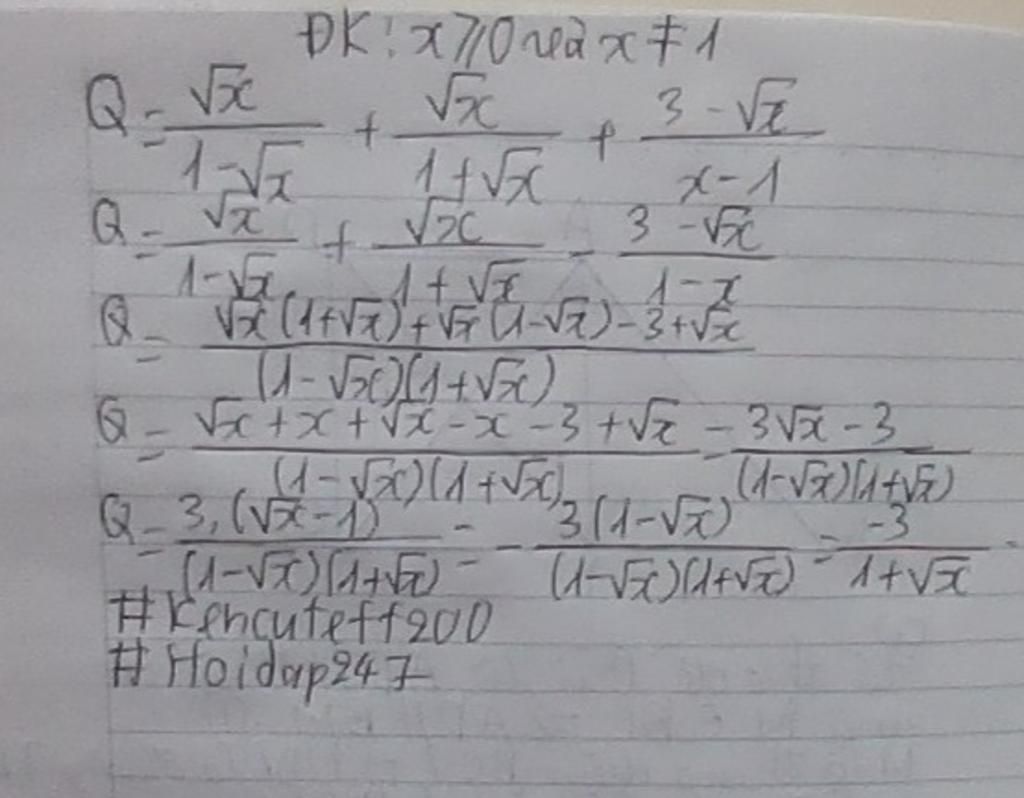 ĐK: x ≥ 0 và x ≠ 1
Q = √x/(1-√x) + √x/(1+√x) + (3-√x)/(x-1)
Q = √x/(1-√x) + √x/(1+√x) - (3-√x)/(1-x)
Q = (√x(1+√x)+√x(1-√x)-3+√x)/((1-√x)(1+√x))
Q = (√x+x+√x-x-3+√x)/((1-√x)(1+√x)) = (3√x-3)/((1-√x)(1+√x))
Q = 3.(√x-1)/((1-√x)(1+√x)) = -3(1-√x)/((1-√x)(1+√x)) = -3/(1+√x).
#Kencuteff200
#Hoidap247